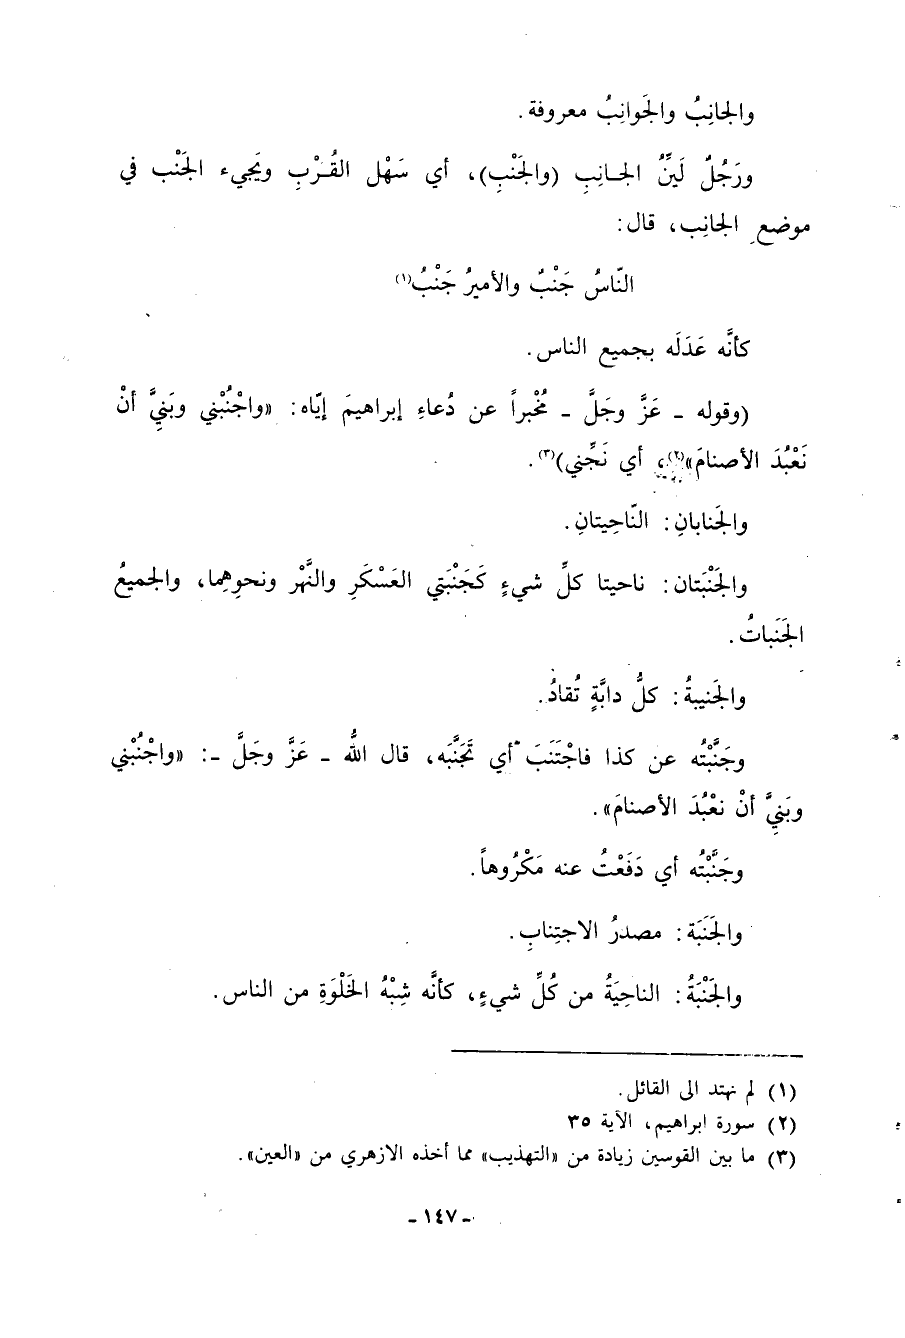 والجانِبُ والجَوانِبُ معروفة.
ورَجُلٌ لَيِّنُ الجانِبِ (والجَنْبِ)، أي سَهْل القُرْبِ ويَجيء الجَنْب في
موضع الجانِب، قال:
النّاسُ جَنْبٌ والأميرُ جَنْبُ(١)
كأنَّه عَدَلَه بجميع الناس.
(وقوله ـ عَزَّ وجَلَّ ـ مُخْبراً عن دُعاءِ إبراهيمَ إيّاه: «واجْنُبْني وبَنِيَّ أنْ
نَعْبُدَ الأصنامَ»(٢)، أي نَجِّني)(٣).
والجَنابانِ: النّاحِيتانِ.
والجَنْبَتان: ناحيتا كلِّ شيءٍ كَجَنْبَتي العَسْكَرِ والنَّهْر ونحوِهِما، والجميعُ
الجَنَباتُ.
والجَنيبةُ: كلُّ دابَّةٍ تُقادُ.
وجَنَّبْتُه عن كذا فاجْتَنَبَ أي تَجَنَّبَه، قال اللهُ ـ عَزَّ وجَلَّ ـ: «واجْنُبْني
وبَنِيَّ أنْ نعْبُدَ الأصنامَ».
وجَنَّبْتُه أي دَفَعْتُ عنه مَكْرُوهاً.
والجَنَبَة: مصدرُ الاجتِنابِ.
والجَنْبَةُ: الناحِيَةُ من كُلِّ شيءٍ، كأنَّه شِبْهُ الخَلْوَةِ من الناس.
(١) لم نهتد الى القائل.
(٢) سورة ابراهيم، الآية ٣٥
(٣) ما بين القوسين زيادة من «التهذيب» مما أخذه الازهري من «العين».
ـ ١٤٧ ـ